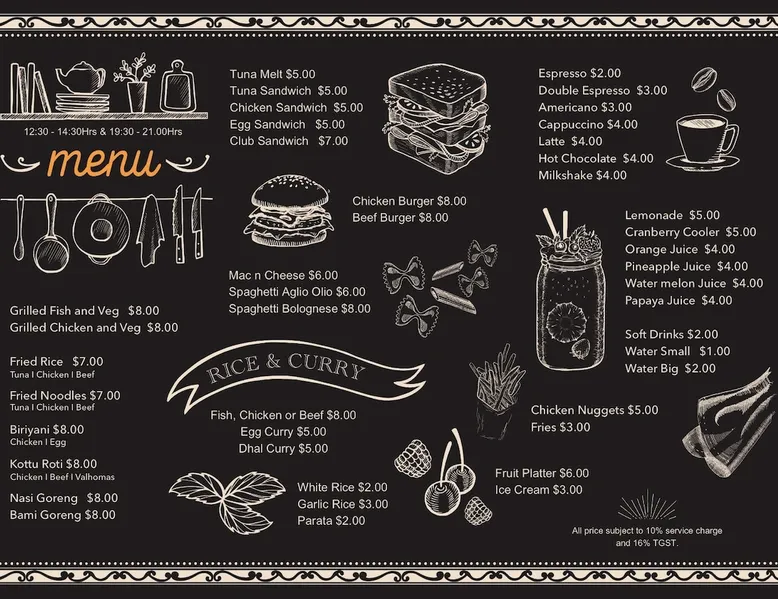 12:30 - 14:30Hrs & 19:30 - 21.00Hrs
menu
Grilled Fish and Veg $8.00
Grilled Chicken and Veg $8.00
Fried Rice $7.00
Tuna I Chicken I Beef
Fried Noodles $7.00
Tuna I Chicken I Beef
Biriyani $8.00
Chicken I Egg
Kottu Roti $8.00
Chicken I Beef I Valhomas
Nasi Goreng $8.00
Bami Goreng $8.00
Tuna Melt $5.00
Tuna Sandwich $5.00
Chicken Sandwich $5.00
Egg Sandwich $5.00
Club Sandwich $7.00
Chicken Burger $8.00
Beef Burger $8.00
Mac n Cheese $6.00
Spaghetti Aglio Olio $6.00
Spaghetti Bolognese $8.00
RICE & CURRY
Fish, Chicken or Beef $8.00
Egg Curry $5.00
Dhal Curry $5.00
White Rice $2.00
Garlic Rice $3.00
Parata $2.00
Espresso $2.00
Double Espresso $3.00
Americano $3.00
Cappuccino $4.00
Latte $4.00
Hot Chocolate $4.00
Milkshake $4.00
Lemonade $5.00
Cranberry Cooler $5.00
Orange Juice $4.00
Pineapple Juice $4.00
Water melon Juice $4.00
Papaya Juice $4.00
Soft Drinks $2.00
Water Small $1.00
Water Big $2.00
Chicken Nuggets $5.00
Fries $3.00
Fruit Platter $6.00
Ice Cream $3.00
All price subject to 10% service charge
and 16% TGST.